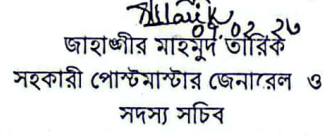 ০৭.০২.২৩
জাহাঙ্গীর মাহমুদ তারিক
সহকারী পোস্টমাস্টার জেনারেল ও
সদস্য সচিব